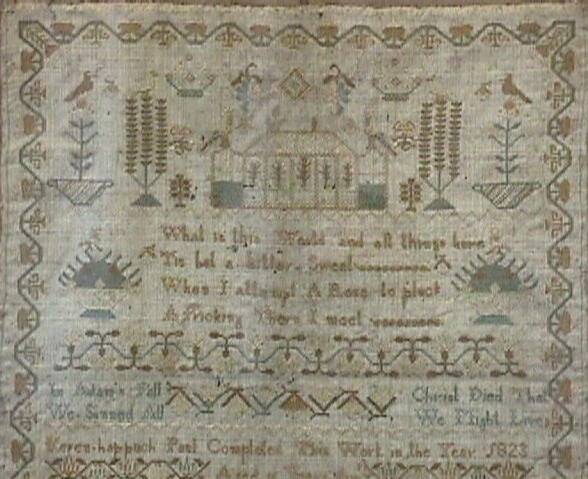 What is this World and all things here
Tis but a bitter Sweet
When I attempt A Rose to pluck
A Pricking Thorn I meet
In Adam's Fall
We Sinned All
Christ Died That
We Might Live
Keren-happuch Peat Completed This Work in the Year 1823
Aged